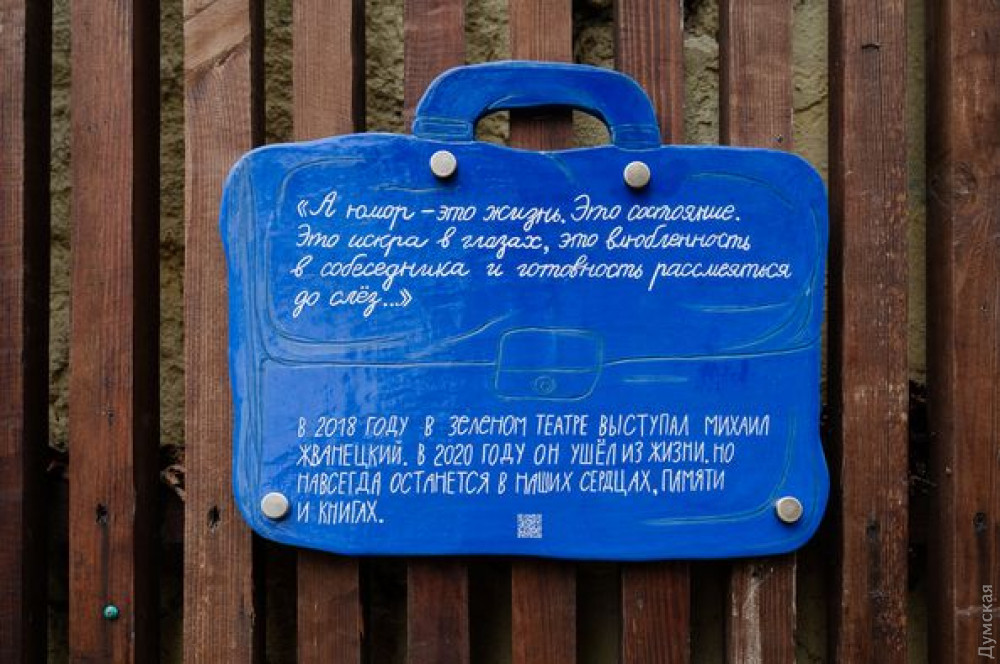 «А юмор – это жизнь. Это состояние.
Это искра в глазах, это влюбленность
в собеседника и готовность рассмеяться
до слёз...»
В 2018 ГОДУ В ЗЕЛЕНОМ ТЕАТРЕ ВЫСТУПАЛ МИХАИЛ
ЖВАНЕЦКИЙ. В 2020 ГОДУ ОН УШЁЛ ИЗ ЖИЗНИ. НО
НАВСЕГДА ОСТАНЕТСЯ В НАШИХ СЕРДЦАХ, ПАМЯТИ
И КНИГАХ.
Думская